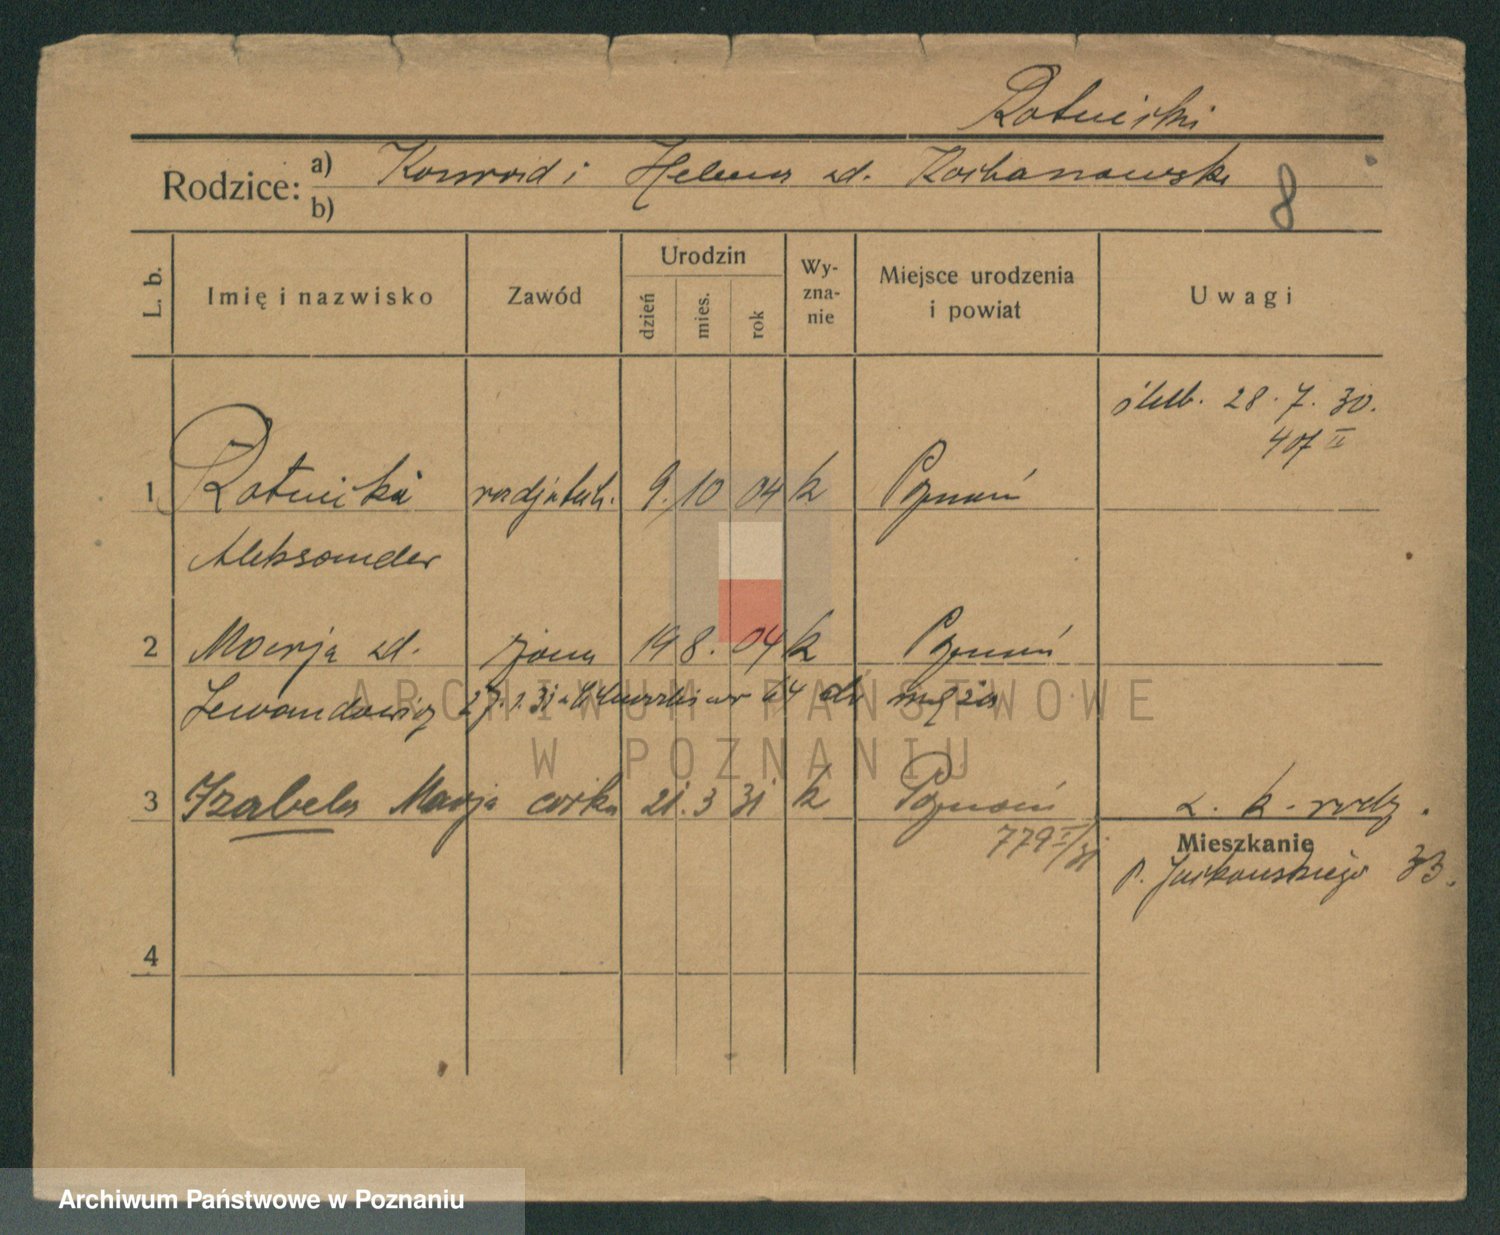 Ratnicki
Rodzice: a) Konrad i Helena zd. Kochanowska
b)
8
L. b.
Imię i nazwisko
Zawód
Urodzin
dzień
mies.
rok
Wy-
zna-
nie
Miejsce urodzenia
i powiat
Uwagi
ślub. 28. 7. 30.
407 II
1 Ratnicki 9. 10 04 k Poznań
Aleksander
2 Marja zd. żona 19 8. 04 k Poznań
Lewandowicz 27. 1. 31 64 do męża
3 Izabela Marja córka 21. 3 31 k Poznań
779 I/31
Mieszkanie
33.
4
ARCHIWUM PAŃSTWOWE
W POZNANIU
Archiwum Państwowe w Poznaniu